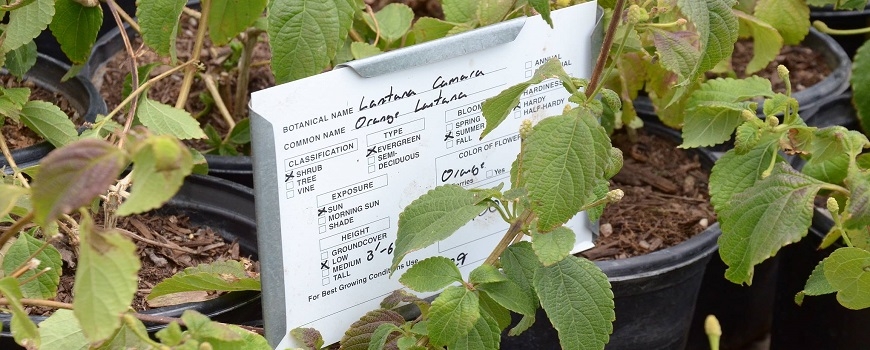 BOTANICAL NAME Lantana Camara
COMMON NAME Orange Lantana
CLASSIFICATION
x SHRUB
TREE
VINE
TYPE
x EVERGREEN
SEMI-
DECIDUOUS
EXPOSURE
x SUN
MORNING SUN
SHADE
HEIGHT
GROUNDCOVER
x LOW
MEDIUM 3'-6
TALL
For Best Growing Conditions
BLOOM
SPRING
x SUMMER
FALL
COLOR OF FLOWER
Orange
Yes
ANNUAL
HARDINESS
HARDY
HALF-HARDY